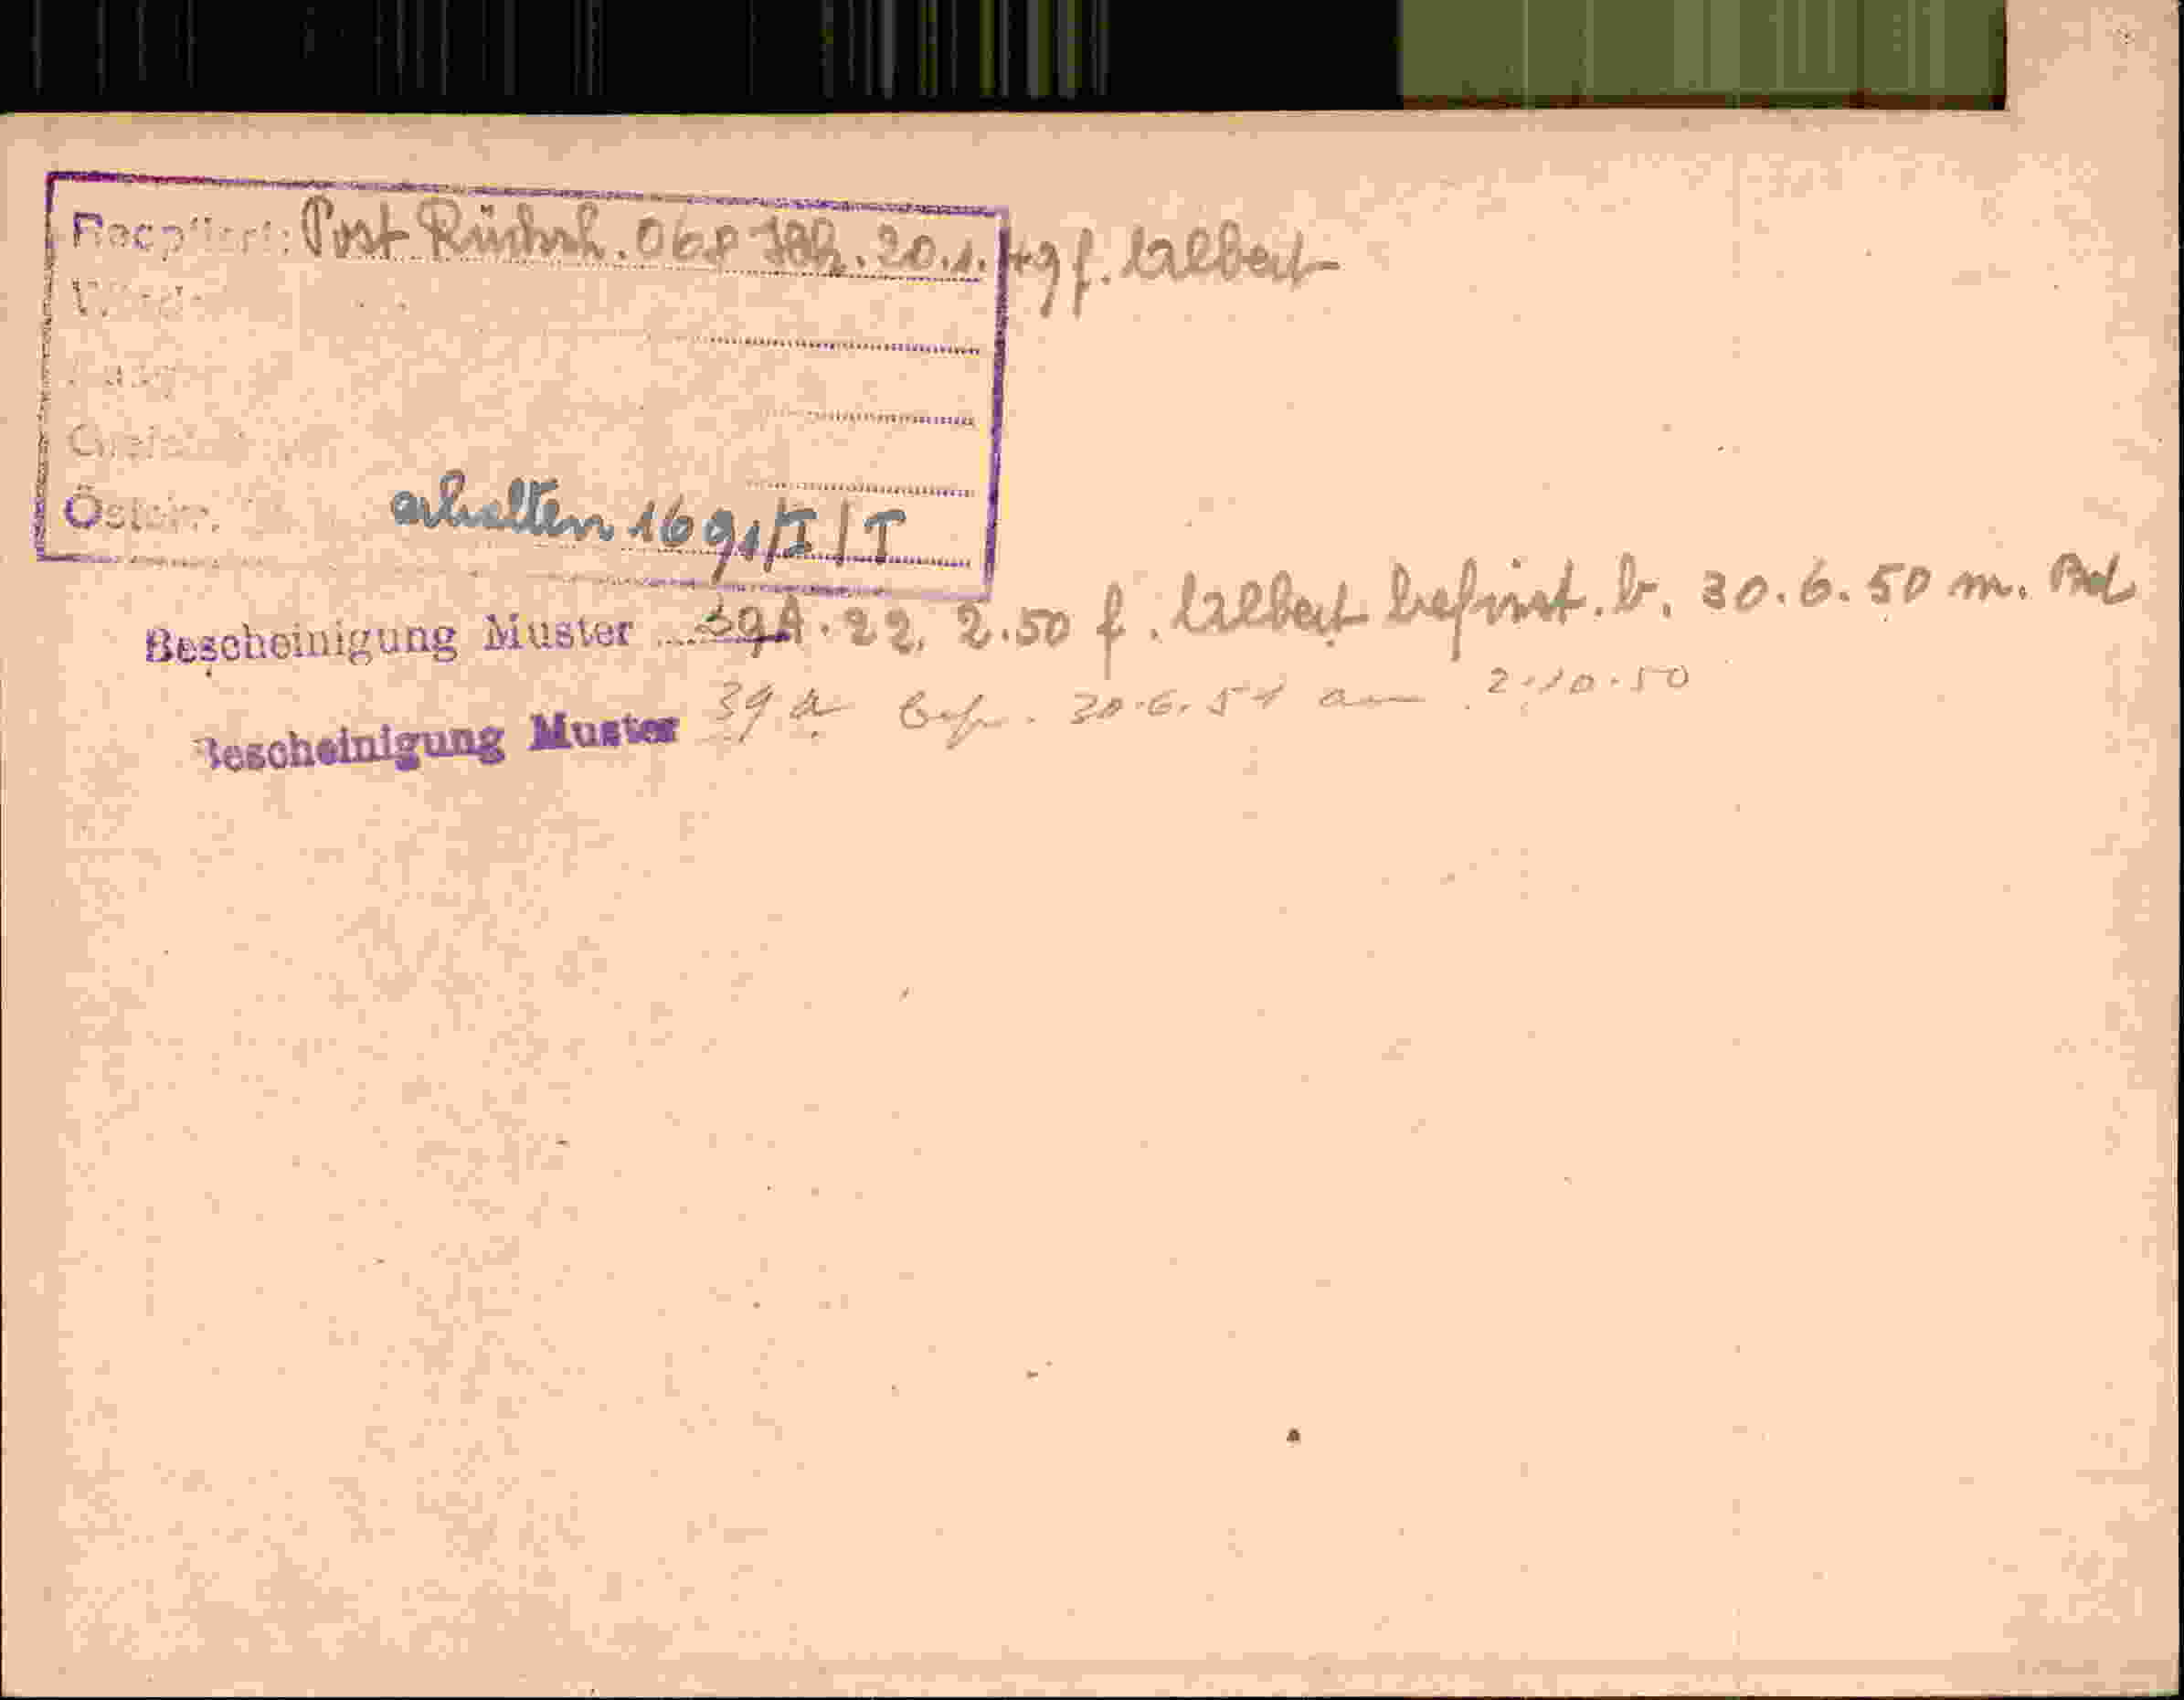 Recptiert: Post Rücksch. 068 20.1.49 f. Albert
Österr. erhalten 1691/I/T
Bescheinigung Muster 39A. 22. 2.50 f. Albert befrist. b. 30.6.50 m.
Bescheinigung Muster 39 a bef. 30.6.51 am 2.10.50